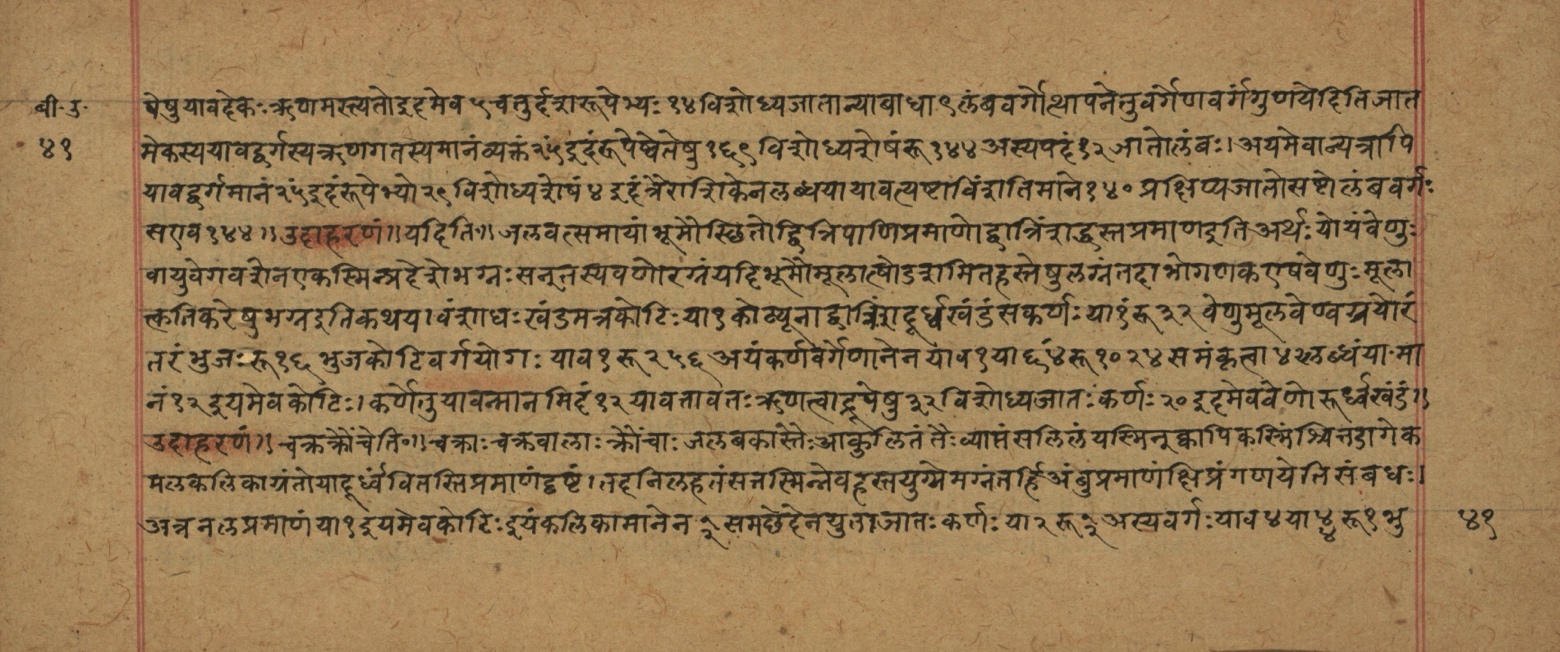 बी॰ उ॰
४१
पेषुयावदेकः ऋणमस्त्यतोइदमेव ५ चतुर्दशरूपेभ्यः १४ विशोध्यजातान्याबाधा ९ लंबवर्गोत्थापनेतुवर्गेणवर्गंगुणयेदितिजात
मेकस्ययावद्वर्गस्यऋणगतस्यमानंव्यक्तं २५ इदंरूपेष्वेतेषु १६९ विशोध्यशेषंरू १४४ अस्यपदं १२ जातोलंबः। अयमेवान्यत्रापि
यावद्वर्गमानं २५ इदंरूपेभ्यो २९ विशोध्यशेषं ४ इदंत्रैराशिकेनलब्धयायावत्यष्टाविंशतिमाने १४० प्रक्षिप्यजातोसष्टोलंबवर्गः
सएव १४४॥ उदाहरणं॥ यदिति॥ जलवत्समायांभूमौस्छितोद्वित्रिपाणिप्रमाणोद्वात्रिंशद्धस्तप्रमाणइतिअर्थः योयंवेणुः
वायुवेगवशेनएकस्मिन्प्रदेशेभग्नः सन्नुतस्यवणोरग्नंयदिभूमौमूलात्षोडशमितहस्तेषुलग्नंतदाभोगणकएषवेणुः मूला
त्कतिकरेषुभग्नइतिकथय। वंशाधः खंडमत्रकोटिः या १ कोट्यूनाद्वात्रिंशदूर्ध्वखंडंसकर्णः या १ं रू ३२ वेणुमूलवेण्वग्रयोरं
तरंभुजः रू १६ भुजकोटिवर्गयोगः याव १ रू २५६ अयंकर्णवर्गेणानेनयाव १ या ६४ं रू १०२४ समंकृत्वा ४ लब्धंया॰ मा
नं १२ इयमेवकोटिः। कर्णेतुयावन्मानमिदं १२ यावत्तावतः ऋणत्वाद्रूपेषु ३२ विशोध्यजातः कर्णः २० इदमेववेणोरूर्ध्वखंडं॥
उदाहरणं॥ चक्रक्रौंचेति॰॥ चक्राः चक्रवालाः क्रौंचाः जलबकास्तैः आकुलितंतैः व्याप्तंसलिलंयस्मिन्क्वापिकस्मिंश्चित्तडागेक
मलकलिकाग्रंतोयादूर्ध्वंवितस्तिप्रमाणंदृष्टं। तदनिलहतंसत्तस्मिन्नेवहस्तयुग्मेमग्नंतर्हिअंबुप्रमाणंक्षिप्रंगणयेतिसंबधः।
अत्रनलप्रमाणंया १ इयमेवकोटिः इयंकलिकामानेन १/२ समछेदेनयुताजातः कर्णः या २ रू १/२ अस्यवर्गः याव ४ या ४/४ रू १ भु
४१